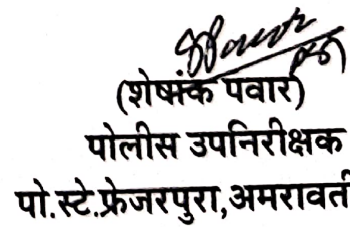 (शेषांक पवार)
पोलीस उपनिरीक्षक
पो.स्टे.फ्रेजरपुरा,अमरावती